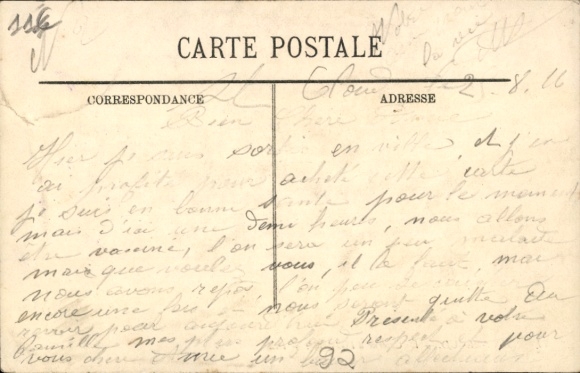 116
CARTE POSTALE
St Cloud le 2. 8. 16
CORRESPONDANCE
ADRESSE
Bien Chère
Hier je suis sortie en ville et j'en
ai profité pour acheté cette carte
je suis en bonne santé pour le moment
mais d'ici une demi heures, nous allons
etre vacciné, l'on sera un peu malade
mais que voulez vous, il le faut, mais
nous avons repos, l'on
encore une fois et nous serons quitte
revoir pour aujourd'hui Présente à votre
famille mes plus profond respect pour
vous un
92